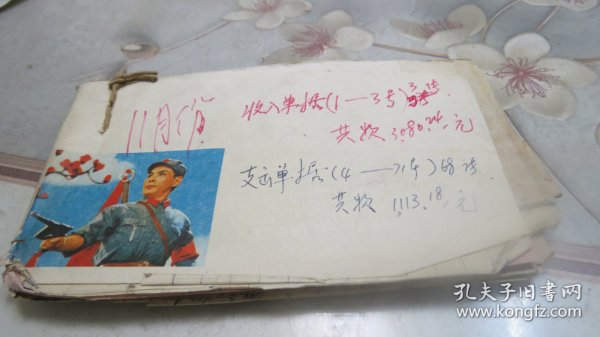 11月份
收入单据(1—3号)3张
共款3080.24元
支出单据(4—71号)68张
共款1113.18元
孔夫子旧书网
www.kongfz.com